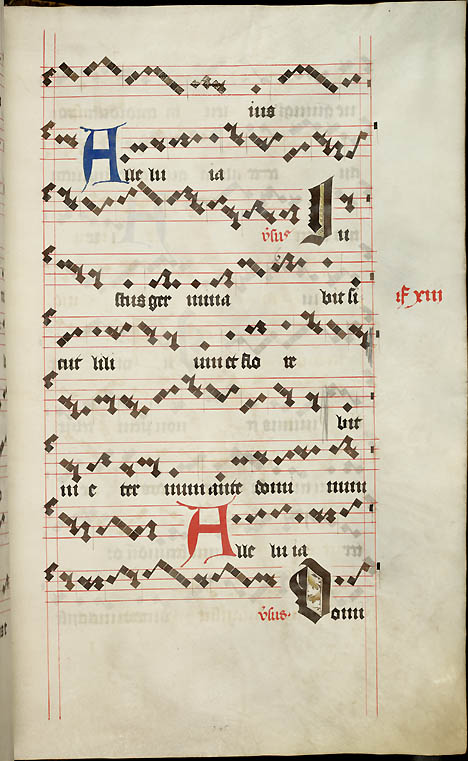 ius
Alle lu ia
v̄sus Iu
stus ger mina bit si
cut lili um et flo re
bit
in e ter num ante domi num
Alle lu ia
v̄sus. Domi
xiii